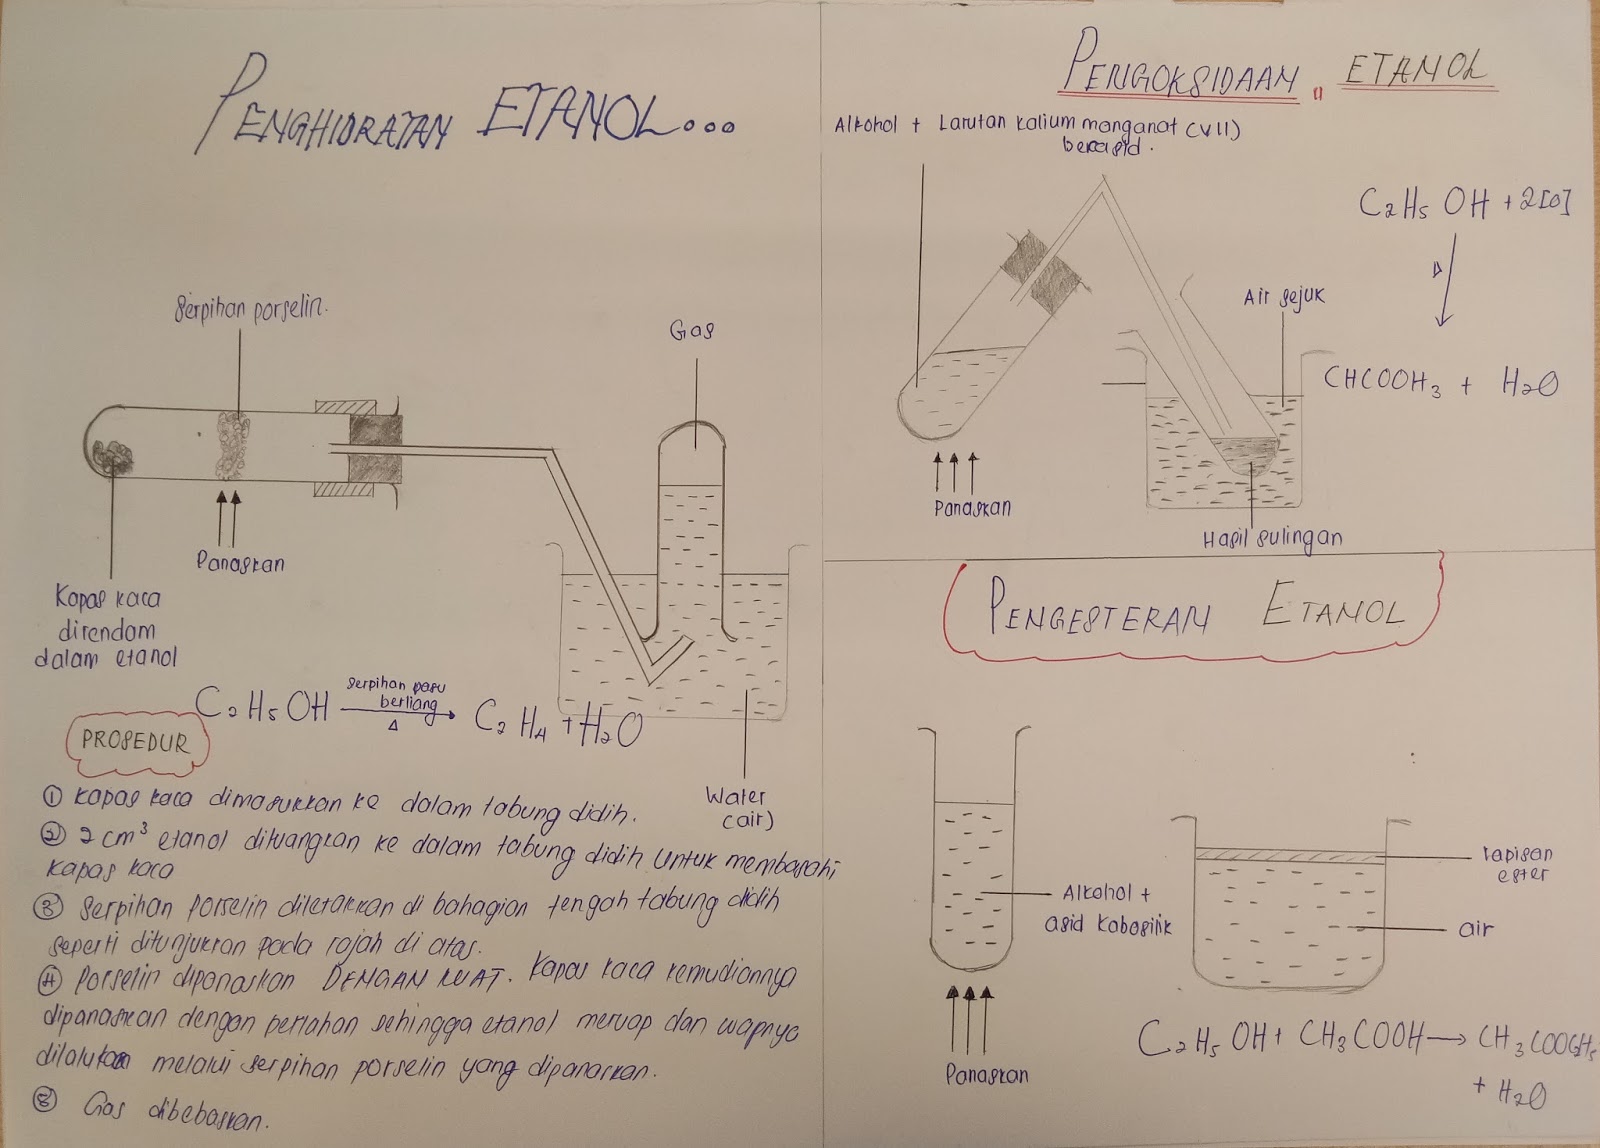 PENGHIDRATAN ETANOL...
Serpihan porselin.
Gas
Panaskan
Kapas kaca
direndam
dalam etanol
C2H5OH serpihan pasu berliang Δ C2H4 + H2O
Water
(air)
PROSEDUR
① Kapas kaca dimasukkan ke dalam tabung didih.
② 2 cm³ etanol dituangkan ke dalam tabung didih untuk membasahi
kapas kaca
③ Serpihan porselin diletakkan di bahagian tengah tabung didih
seperti ditunjukkan pada rajah di atas.
④ Porselin dipanaskan DENGAN KUAT. Kapas kaca kemudiannya
dipanaskan dengan perlahan sehingga etanol meruap dan wapnya
dilalukan melalui serpihan porselin yang dipanaskan.
⑤ Gas dibebaskan.
PENGOKSIDAAN ETANOL
Alkohol + Larutan kalium manganat (VII)
berasid.
C2H5OH + 2[O]
Δ
CHCOOH3 + H2O
Air sejuk
Panaskan
Hasil sulingan
PENGESTERAN ETANOL
Alkohol +
asid kaboslik
Panaskan
Lapisan
ester
air
C2H5OH + CH3COOH → CH3COOC2H5
+ H2O